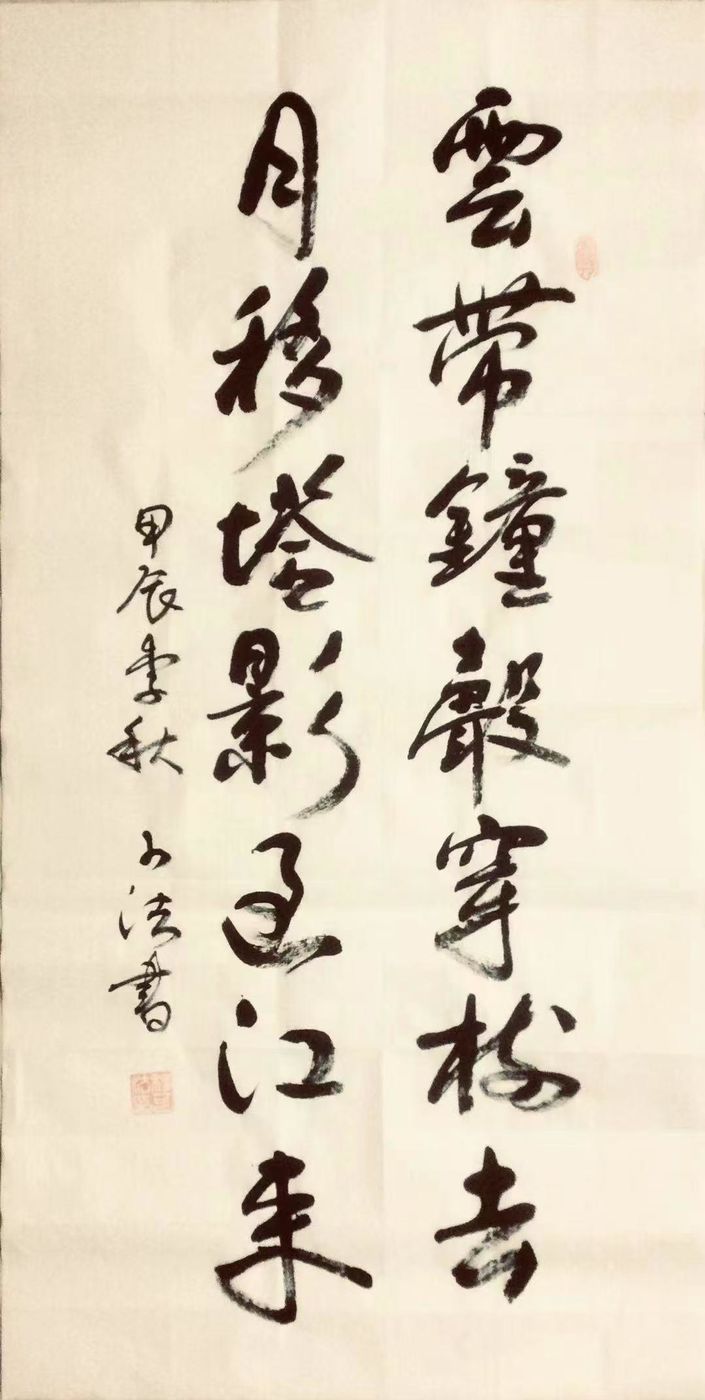 雲帶鐘聲穿樹去
月移塔影過江来
甲辰季秋 少法書